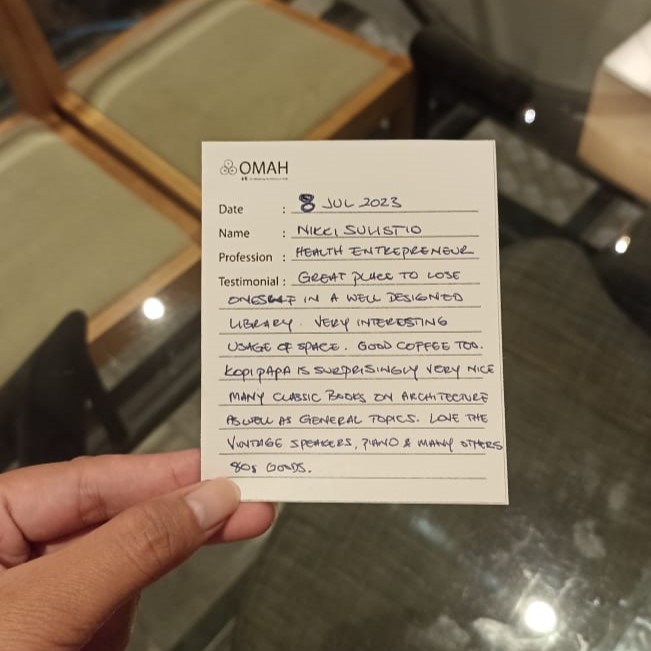 OMAH
Date : 8 JUL 2023
Name : NIKKI SULISTIO
Profession : HEALTH ENTREPRENEUR
Testimonial : GREAT PLACE TO LOSE
ONESELF IN A WELL DESIGNED
LIBRARY. VERY INTERESTING
USAGE OF SPACE. GOOD COFFEE TOO.
KOPI PAPA IS SURPRISINGLY VERY NICE
MANY CLASSIC BOOKS ON ARCHITECTURE
AS WELL AS GENERAL TOPICS. LOVE THE
VINTAGE SPEAKERS, PIANO & MANY OTHERS
80s GOODS.